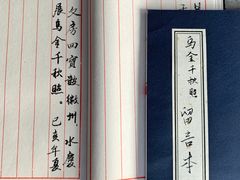 烏金千秋照
留言本
文房四寶數徽州，水
展烏金千秋照。己亥年夏